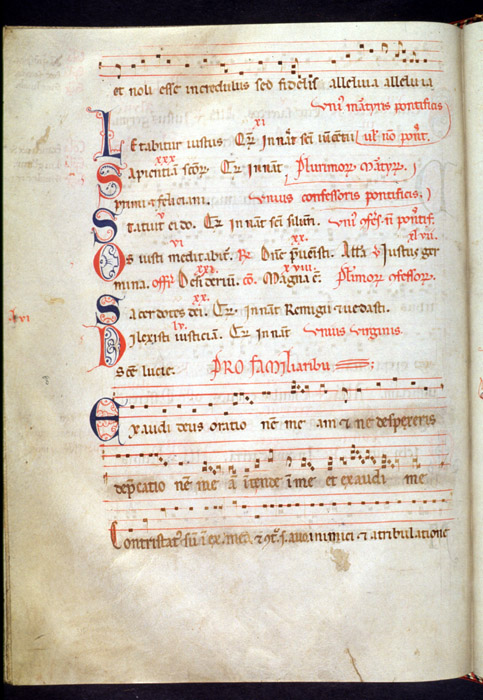 et noli esse incredulus sed fidelis alleluia alleluia
Unius martyris pontificis
xi
Letabitur iustus. Cetera in nat sci vincentii uel non pont.
xxx
Sapientiam scor. Cetera in nat Plurimor martyr.
primi et feliciani. Unius confessoris pontificis
v
Statuit ei do. Cetera in nat sci silvestri. Unius cfes. n pontif.
vi xx. xl vii.
Os iusti meditabit. R. Dne preuenisti. Alla V Iustus ger
xxi xviii
mina. off. Desiderium. co. Magna e. Plurimor cfessor.
xx.
Sacerdotes dei. Cetera in nat Remigii et uedasti.
xvi lv.
Dilexisti iusticiam. Cetera in nat Unius uirginis
sce lucie. PRO familiaribus
Exaudi deus oratio nem me am et ne despexeris
deprecatio nem me am intende in me et exaudi me
Contristatus sum in ex. mea et ct. s. a uoce inimici et a tribulatione